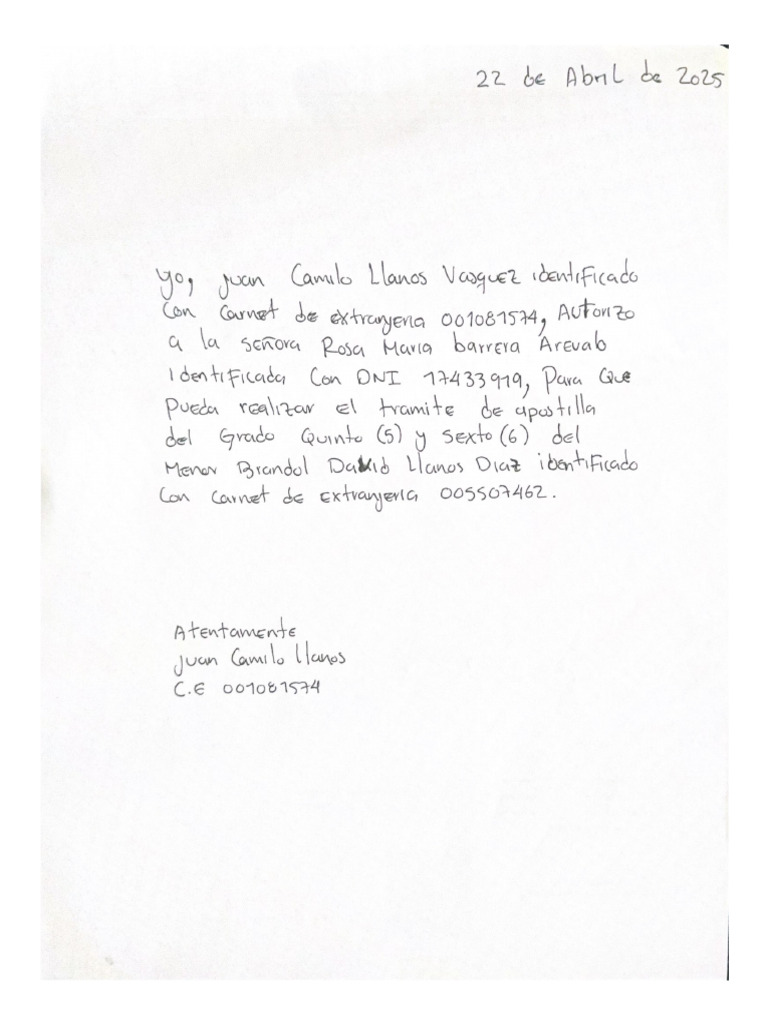 22 de Abril de 2025
Yo, Juan Camilo Llanos Vasquez identificado
Con Carnet de extranjeria 001081574, Autorizo
a la señora Rosa Maria barrera Arevalo
Identificada Con DNI 17433919, Para Que
Pueda realizar el tramite de apostilla
del Grado Quinto (5) y Sexto (6) del
Menor Brandol David Llanos Diaz identificado
Con Carnet de extranjeria 005507462.
Atentamente
Juan Camilo Llanos
C.E 001081574